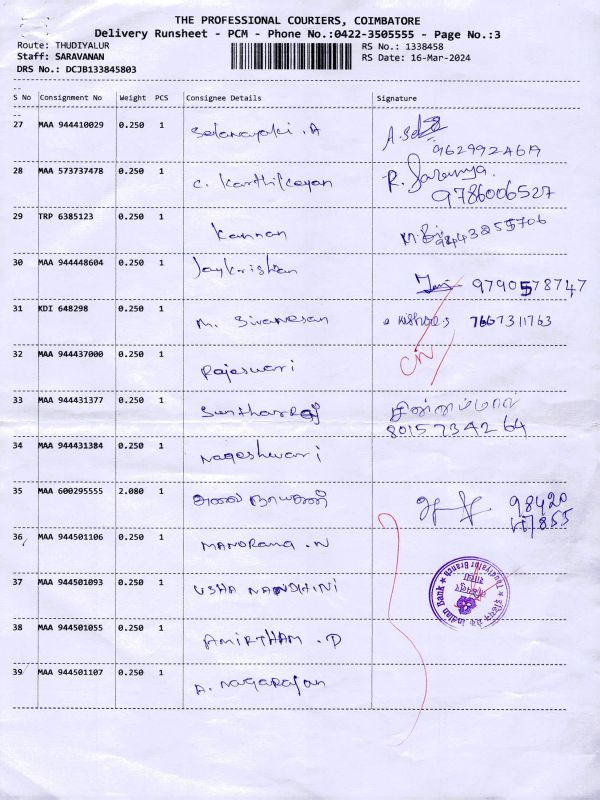 THE PROFESSIONAL COURIERS, COIMBATORE
Delivery Runsheet - PCM - Phone No.:0422-3505555 - Page No.:3
Route: THUDIYALUR
RS No.: 1338458
Staff: SARAVANAN
RS Date: 16-Mar-2024
DRS No.: DCJB133845803
S No Consignment No Weight PCS Consignee Details Signature
27 MAA 944410029 0.250 1 Selanayaki .A
28 MAA 573737478 0.250 1 C. Karthikeyan R. Saranya.
9786006527
29 TRP 6385123 0.250 1 Kannan 9443855706
30 MAA 944448604 0.250 1 Jaykrishan 9790578747
31 KDI 648298 0.250 1 M. Sivanesan 7667311763
32 MAA 944437000 0.250 1 Rajeswari
33 MAA 944431377 0.250 1
8015734264
34 MAA 944431384 0.250 1 Nageshwari
35 MAA 600295555 2.080 1 98420
36 MAA 944501106 0.250 1 MANORAMA .N
37 MAA 944501093 0.250 1 USHA NANDHINI
Indian Bank
38 MAA 944501055 0.250 1 AMIRTHAM .P
39 MAA 944501107 0.250 1 A. Nagarajan